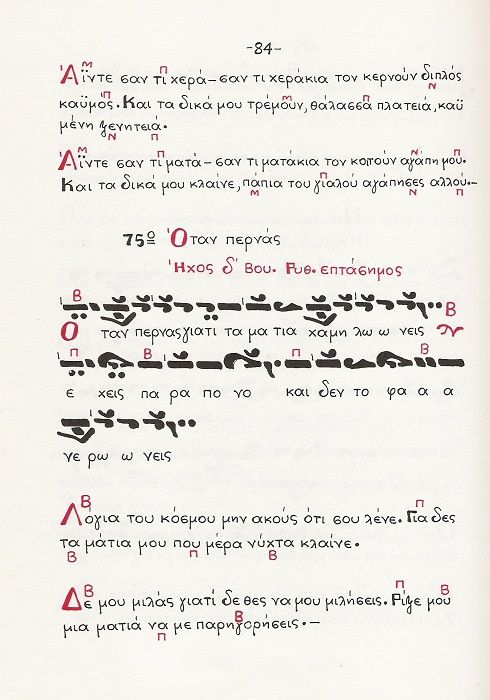 -84-
Ἄϊντε σαν τι χερά-σαν τι χεράκια τον κερνούν διπλός
καϋμός. Και τα δικά μου τρέμουν, θάλασσα πλατειά, καϋ
μένη ξενητειά.
Ἄϊντε σαν τι ματά-σαν τι ματάκια τον κοιτούν αγάπη μου.
Και τα δικά μου κλαίνε, πάπια του γιαλού αγάπησες αλλού.-
75ο Ὅταν περνάς
Ἦχος δ' Βου. Ρυθ. επτάσημος
Ο ταν περνας γιατι τα μα τια χαμη λω ω νεις
ε χεις πα ρα πο νο και δεν το φα α α
νε ρω ω νεις
Λόγια του κόσμου μην ακούς ότι σου λένε. Για δες
τα μάτια μου που μέρα νύχτα κλαίνε.
Δε μου μιλάς γιατί δε θες να μου μιλήσεις. Ρίξε μου
μια ματιά να με παρηγορήσεις.-